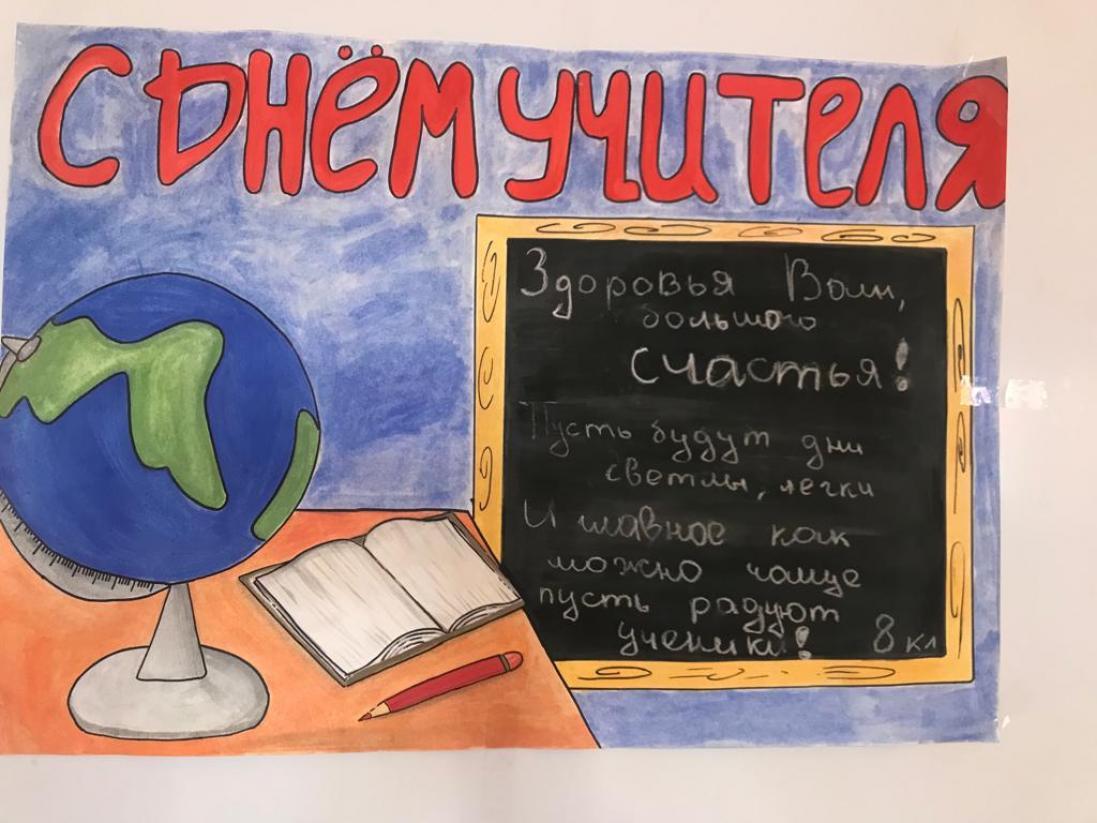 С ДНЁМ УЧИТЕЛЯ
Здоровья Вам,
большого
счастья!
Пусть будут дни
светлы, легки
И главное как
можно чаще
пусть радуют
ученики!
8 кл